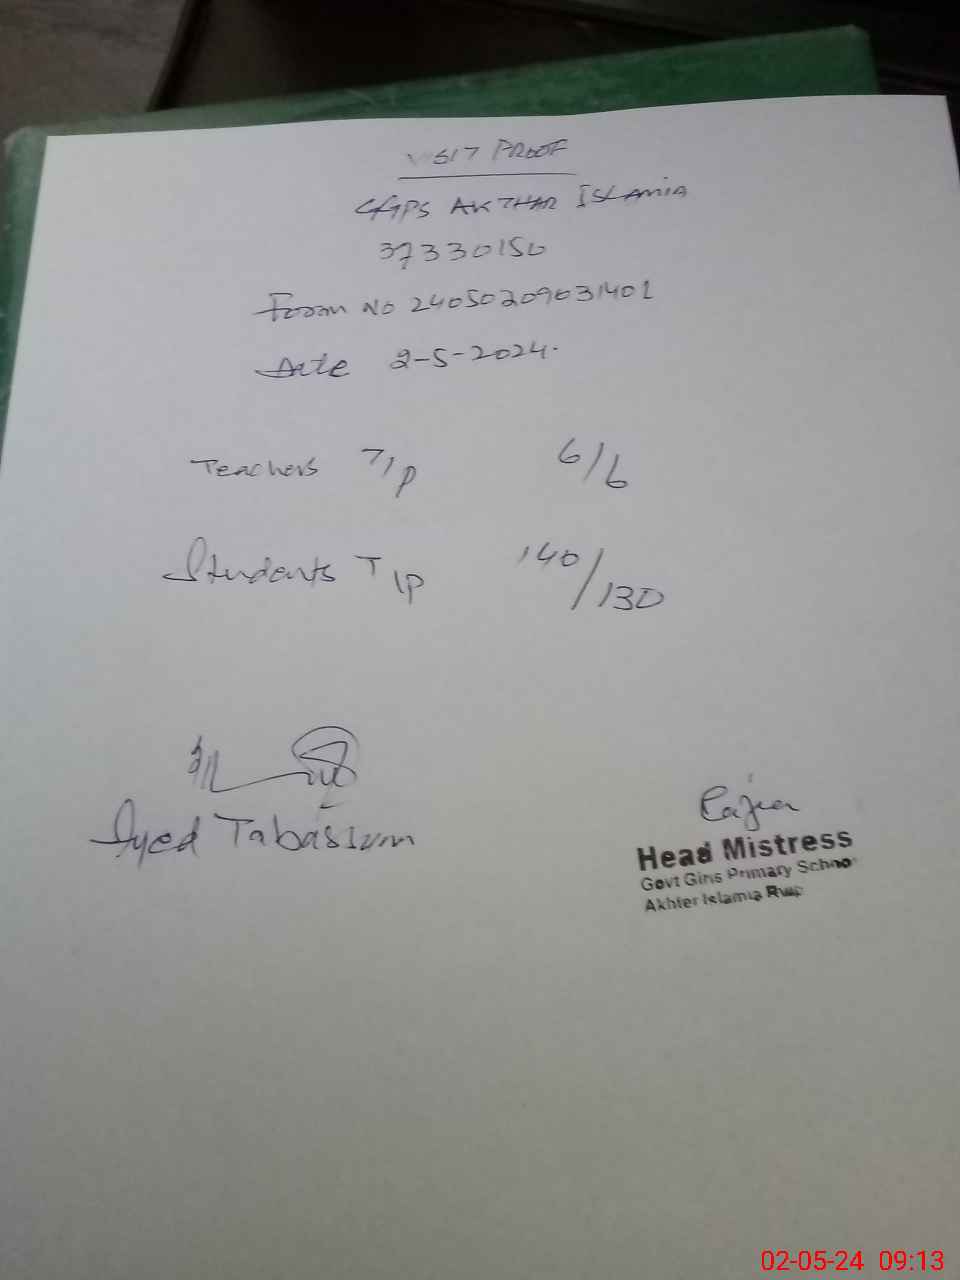 VISIT PROOF
GGPS AKTHAR ISLAMIA
37330150
Form No 24050209031401
Date 2-5-2024.
Teachers T/P 6/6
Students T/P 140/130
Syed Tabassum
Head Mistress
Govt Girls Primary School
Akhter Islamia Rwp
02-05-24 09:13